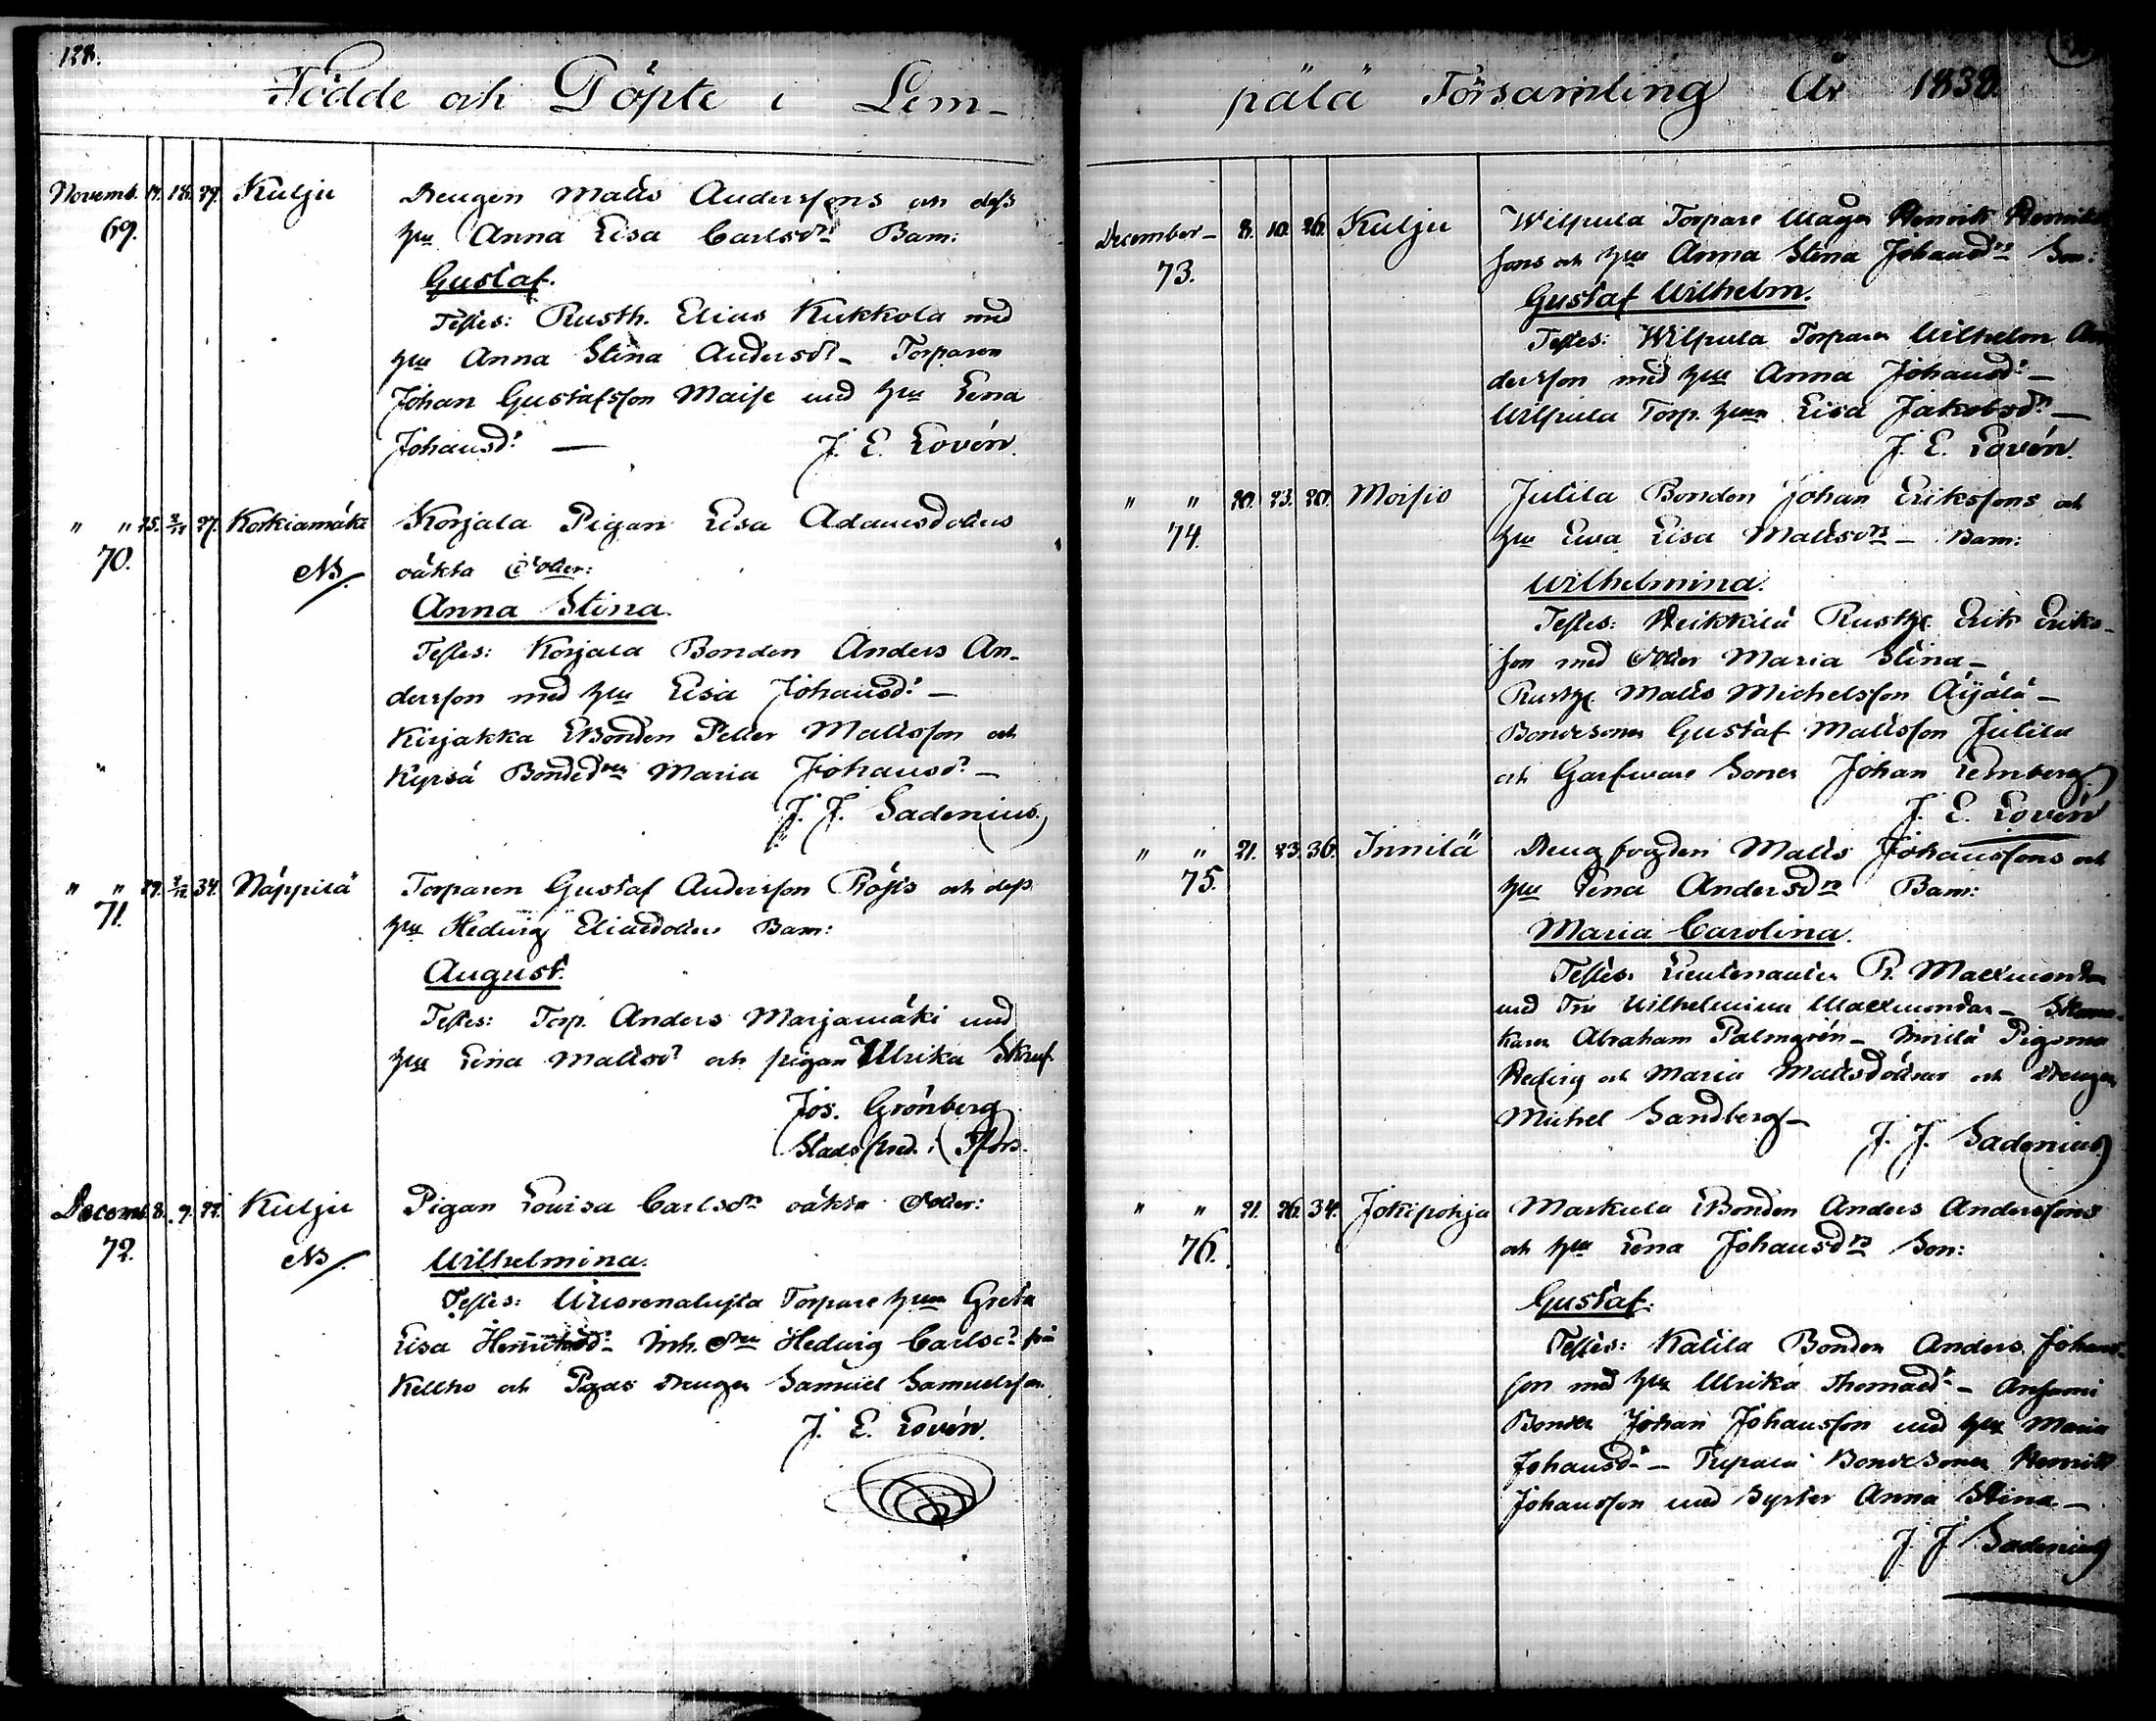 128.
Födde och Döpte i Lem-
Novemb. 17. 18. 27. Kulju Drengen Matts Anderssons och dess
69. hu Anna Lisa Carlsdrs Barn:
Gustaf.
Testes: Rusth. Elias Kukkola med
hu Anna Stina Andersdr – Torparen
Johan Gustafsson Maise med hu Lena
Johansdr – J. E. Lovén.
" " 25. 2/12 27. Korkiamäki Korjala Pigan Lisa Adamsdotters
70. NB. oäkta Dotter:
Anna Stina.
Testes: Korjala Bonden Anders An-
dersson med hu Lisa Johansdr –
Kirjakka Bonden Petter Mattsson och
Kyrsä Bondedr Maria Johansdr –
J. J. Sadenius.
" " 29. 2/12 34. Näppilä Torparen Gustaf Andersson Röjts och dess
71. hu Hedvig Eliædotters Barn:
August.
Testes: Torp. Anders Marjamäki med
hu Lena Mattsdr och pigan Ulrika Skruf
Jos. Grönberg
Stads pred. i Tfors.
Decemb. 8. 9. 22. Kulju Pigan Lovisa Carlsdrs oäkta Dotter:
72. NB. Wilhelmina.
Testes: Torpare hun Greta
Lisa Henriksdr – Inh. Hedvig Carlsdr från
Kellho och Drengen Samuel Samuelsson.
J. E. Lovén.
pälä Församling År 1838.
December – 8. 10. 26. Kulju Wilpula Torpare Måg Henrik Henriks
73. sons och hu Anna Stina Johansdrs Son:
Gustaf Wilhelm.
Testes: Wilpula Torparen Wilhelm An
dersson med hu Anna Johansdr –
Wilpula Torp. hun Lisa Jakobsdr –
J. E. Lovén.
" " 20. 23. 20. Moisio Jutila Bonden Johan Erikssons och
74. hu Ewa Lisa Mattsdrs – Barn:
Wilhelmina.
Testes: Heikkilä Rusth. Erik Eriks-
son med Dotter Maria Stina –
Rusth. Matts Michelsson Äijälä –
Bondesonen Gustaf Mattsson Jutila
och Garfvare Sonen Johan Lemberg.
J. E. Lovén
" " 21. 23. 36. Innilä Drengfogden Matts Johanssons och
75. hu Lena Andersdrs Barn:
Maria Carolina.
Testes: Lieutenanten R. Maexmontan
med Fru Wilhelmina Maexmontan – Skoma-
karen Abraham Palmgrén – Innilä Pigorna
Hedvig och Maria Mattsdöttrar och Drengen
Michel Sandberg –
J. J. Sadenius
" " 21. 26. 34. Jokipohja Markula Bonden Anders Anderssons
76. och hu Lena Johansdrs Son:
Gustaf.
Testes: Katila Bonden Anders Johans-
son med hu Ulrika Thomasdr – Ansami
Bonden Johan Johansson med hu Maria
Johansdr – Tupala Bondesonen Henrik
Johansson med Syster Anna Stina –
J J Sadenius